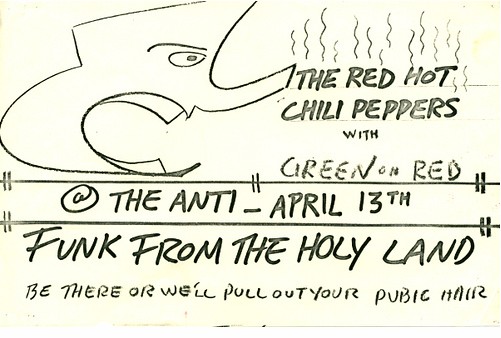 THE RED HOT
CHILI PEPPERS
WITH
GREEN on RED
@ THE ANTI - APRIL 13TH
FUNK FROM THE HOLY LAND
BE THERE OR WE'LL PULL OUT YOUR PUBIC HAIR